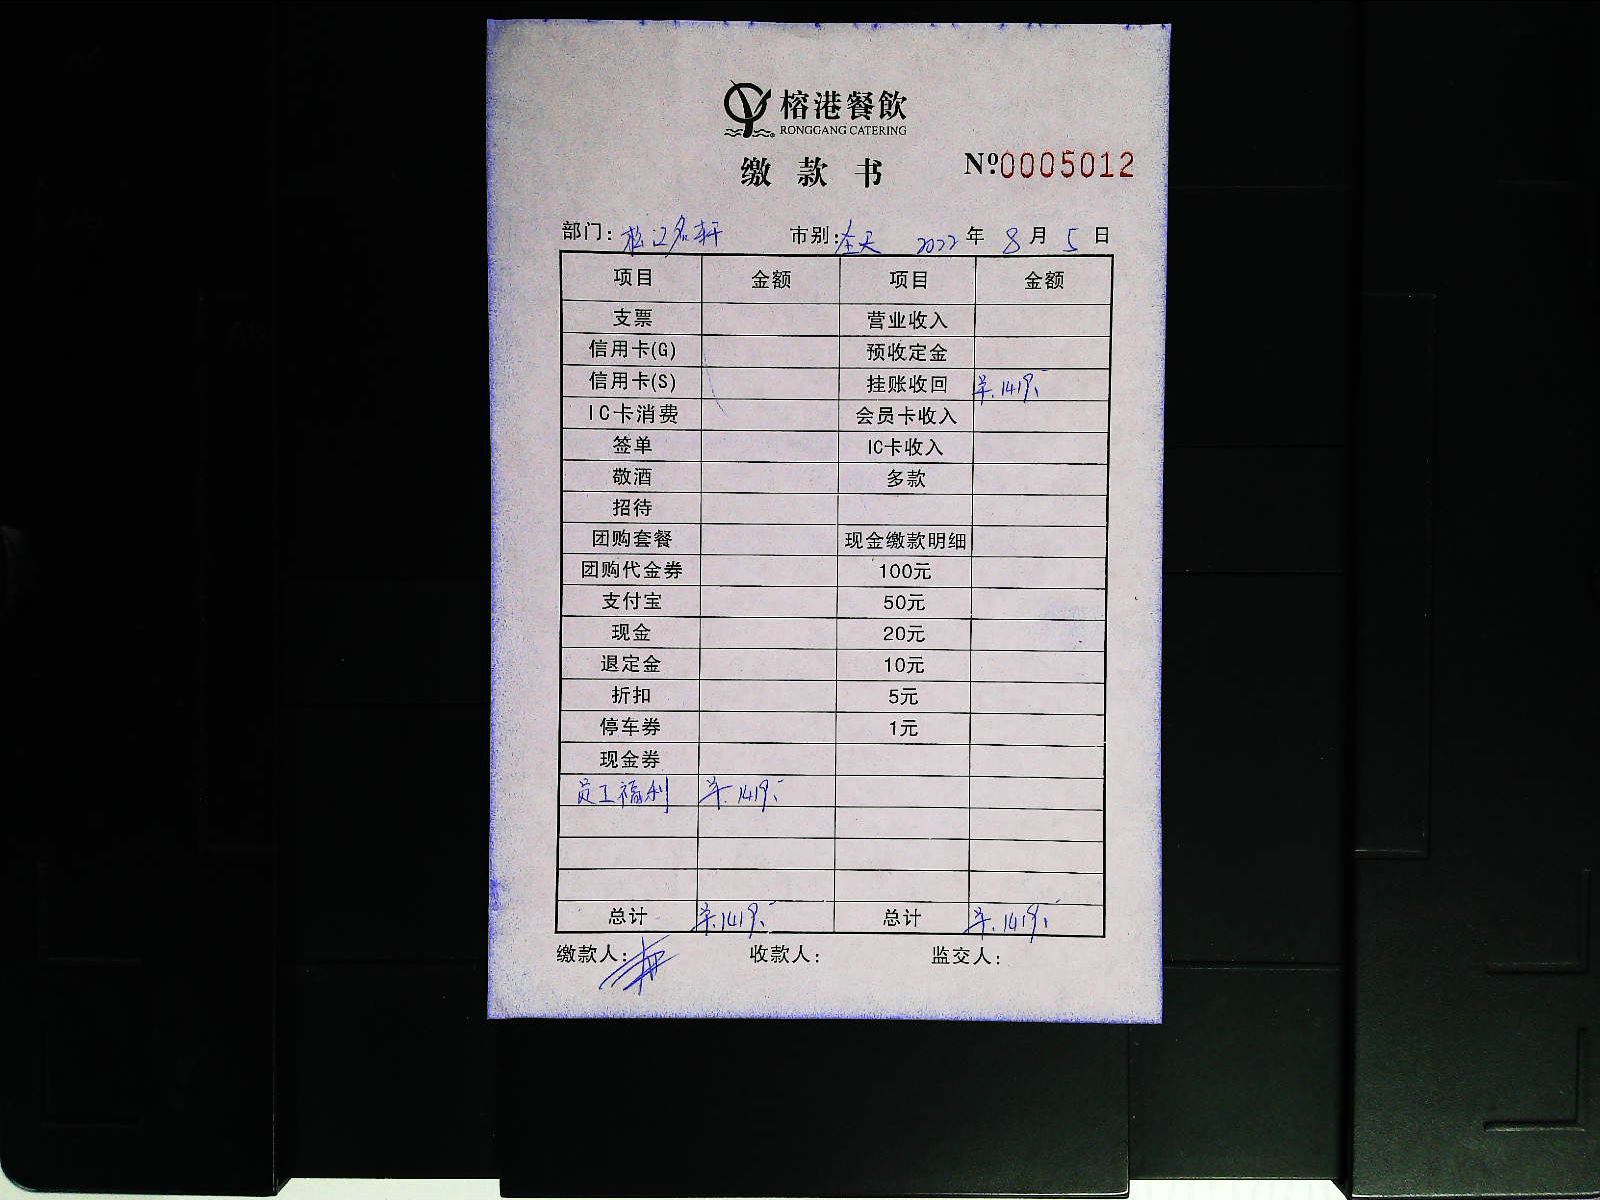 榕港餐飲
RONGGANG CATERING
缴款书
Nº0005012
部门: 松江名轩 市别: 全天 2022年8月5日
项目 金额 项目 金额
支票 营业收入
信用卡(G) 预收定金
信用卡(S) 挂账收回 ¥.1419.-
IC卡消费 会员卡收入
签单 IC卡收入
敬酒 多款
招待
团购套餐 现金缴款明细
团购代金券 100元
支付宝 50元
现金 20元
退定金 10元
折扣 5元
停车券 1元
现金券
员工福利 ¥.1419.-
总计 ¥.1419.- 总计 ¥.1419.-
缴款人: 收款人: 监交人: